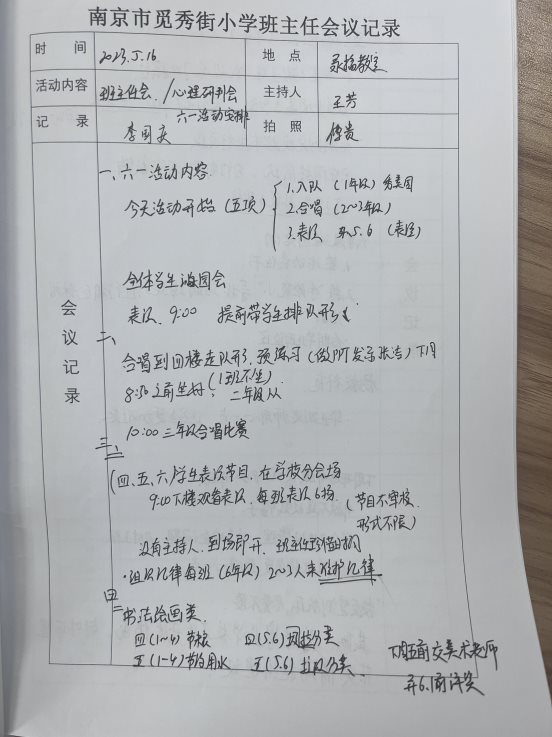 南京市觅秀街小学班主任会议记录
时 间 2023.5.16 地 点 录播教室
活动内容 班主任会 /心理研判会 六一活动安排 主持人 王芳
记 录 李国庆 拍 照
会议记录
一、六一活动内容
今天活动开始 (五项)
1.入队 (1年级)
2.合唱 (2~3年级)
3.表演 4.5.6
全体学生游园会
表演 9:00 提前带学生排队形
二、
合唱到四楼走队形,预演习
8:30之前坐好; (1班不坐) 二年级从
10:00 三年级合唱比赛
三、
(四、五、六)学生表演节目,在学校分会场
9:00下楼观看表演,每班表演6场. (节目不审核, 形式不限)
没有主持人,到场即开,班主任珍惜时间
·组织纪律每班 (6年级) 2~3人来维护纪律
四、
书法绘画类
四(1~4)节粮 四(5.6)垃圾分类
五(1~4)节约用水 五(5.6)垃圾分类
下周五前交美术老师
弄6.1前评奖